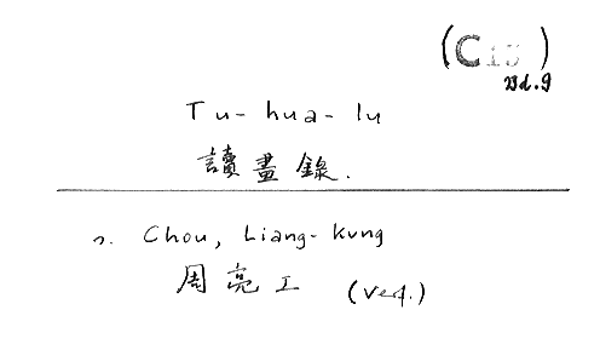 (C15)
Bd.9
Tu-hua-lu
讀畫錄.
v. Chou, Liang-kung
周亮工 (Verf.)